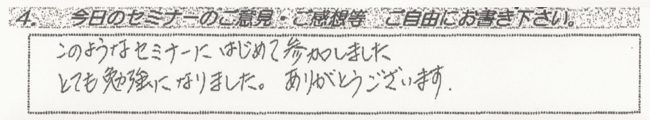 4. 今日のセミナーのご意見・ご感想等 ご自由にお書き下さい。
このようなセミナーにはじめて参加しました
とても勉強になりました。ありがとうございます.